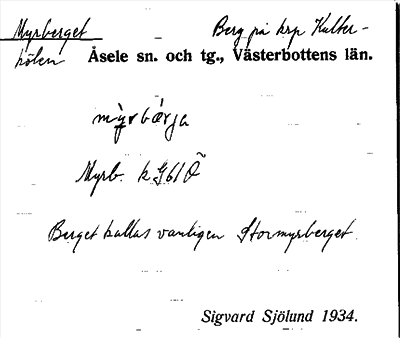 Myrberget Berg på krp Kulter-
hölen Åsele sn. och tg., Västerbottens län.
my̆rbærja
Myrb. k G61 Ö
Berget kallas vanligen Stormyrberget.
Sigvard Sjölund 1934.